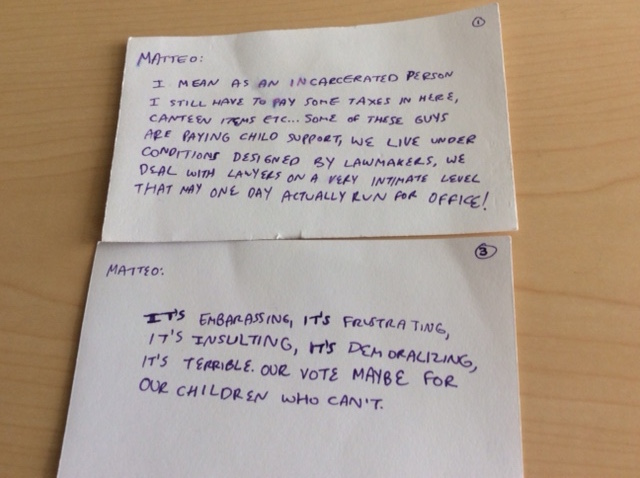 1
MATTEO:
I MEAN AS AN INCARCERATED PERSON
I STILL HAVE TO PAY SOME TAXES IN HERE,
CANTEEN ITEMS ETC... SOME OF THESE GUYS
ARE PAYING CHILD SUPPORT, WE LIVE UNDER
CONDITIONS DESIGNED BY LAWMAKERS, WE
DEAL WITH LAWYERS ON A VERY INTIMATE LEVEL
THAT MAY ONE DAY ACTUALLY RUN FOR OFFICE!
3
MATTEO:
IT'S EMBARASSING, IT'S FRUSTRATING,
IT'S INSULTING, IT'S DEMORALIZING,
IT'S TERRIBLE. OUR VOTE MAYBE FOR
OUR CHILDREN WHO CAN'T.